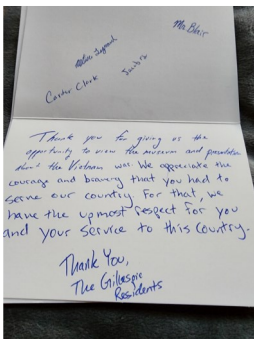 Mr. Blair
Carter Clark
Thank you for giving us the
opportunity to view the museum and presentation
about the Vietnam war. We appreciate the
courage and bravery that you had to
serve our country. For that, we
have the upmost respect for you
and your service to this country.
Thank You,
The Gillespie
Residents